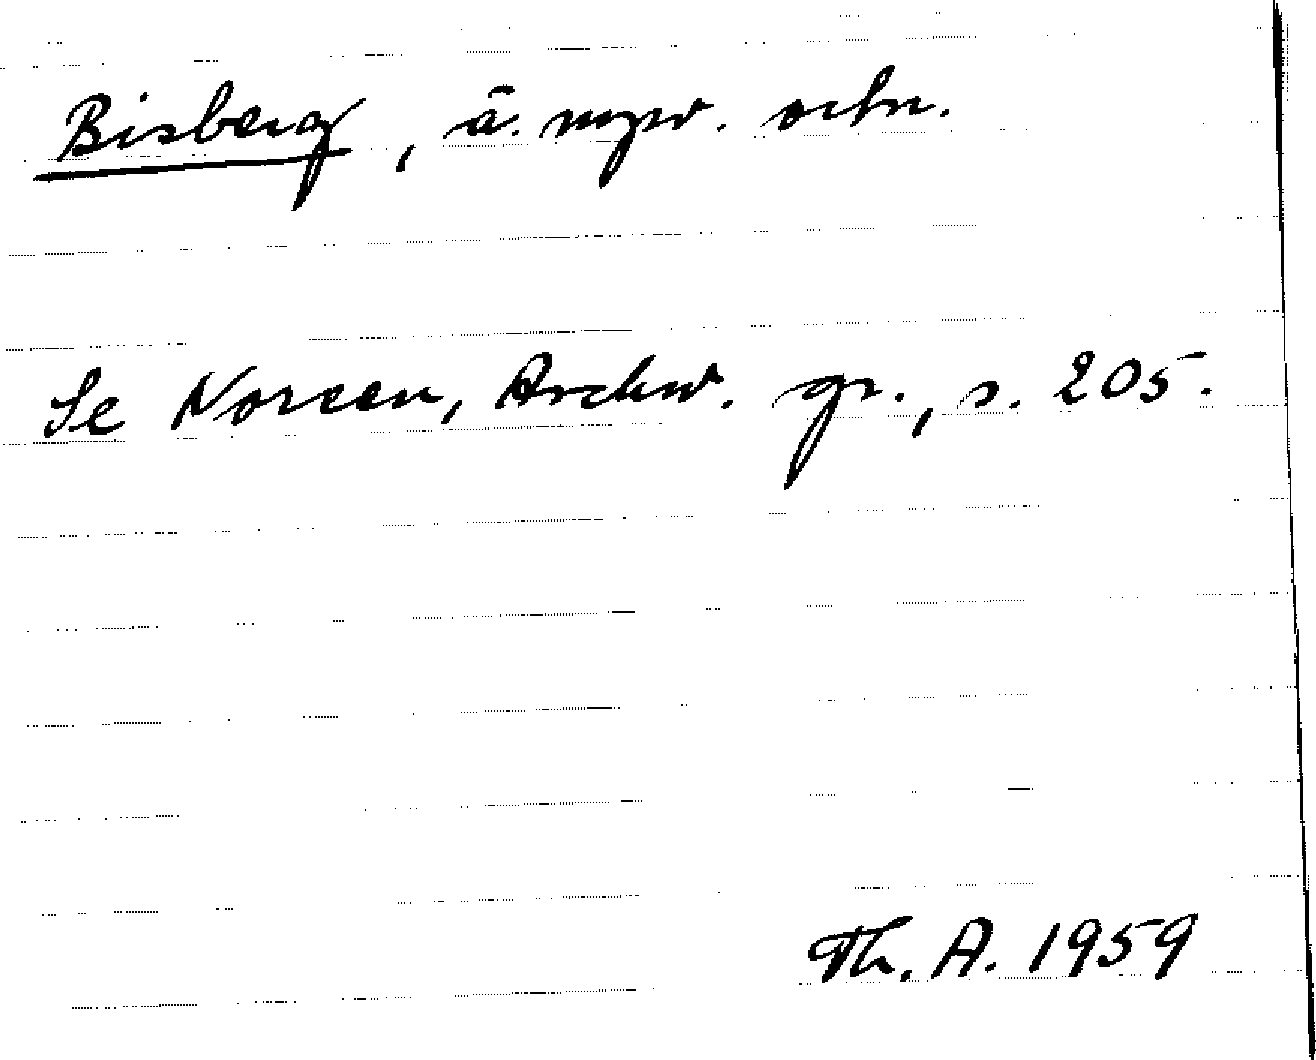 Bisberg, ä. nysv. ortn.
Se Noreen, Aschw. gr., s. 205.
Th. A. 1959